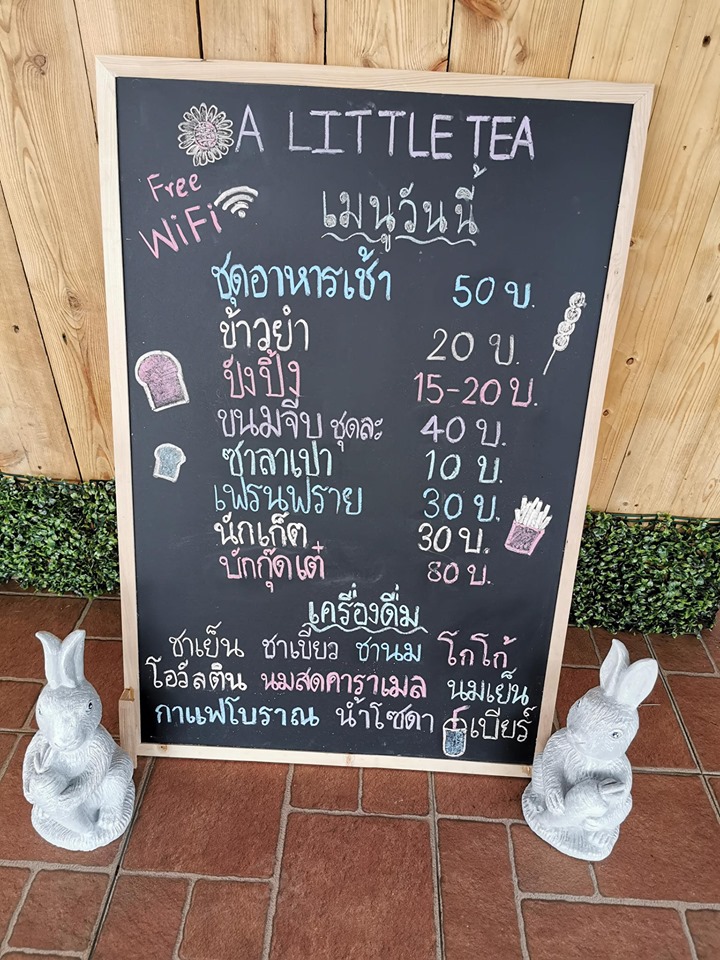 A LITTLE TEA
Free
WiFi
เมนูวันนี้
ชุดอาหารเช้า 50 บ.
ข้าวยำ 20 บ.
ปังปิ้ง 15-20 บ.
ขนมจีบ ชุดละ 40 บ.
ซาลาเปา 10 บ.
เฟรนฟราย 30 บ.
นักเก็ต 30 บ.
บักกุ๊ดเต๋ 80 บ.
เครื่องดื่ม
ชาเย็น ชาเขียว ชานม โกโก้
โอวัลติน นมสดคาราเมล นมเย็น
กาแฟโบราณ น้ำโซดา เบียร์